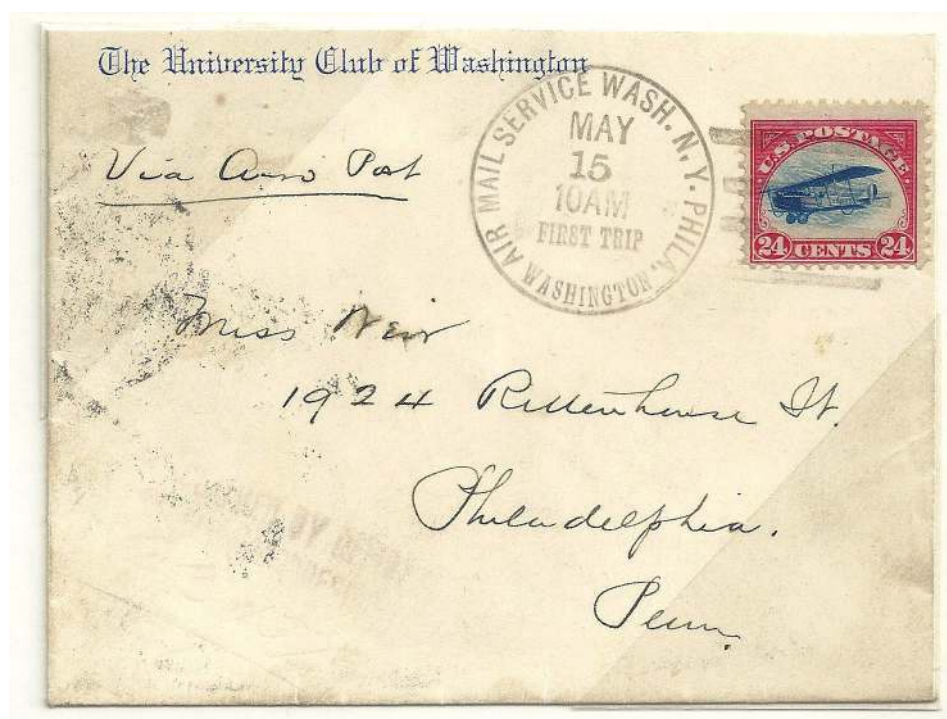 The University Club of Washington
AIR MAIL SERVICE WASH. N.Y. PHILA.
MAY
15
10AM
FIRST TRIP
WASHINGTON
U.S. POSTAGE.
24 CENTS 24
Via Aero Post
Miss
1924 Rittenhouse St.
Philadelphia.
Penn.